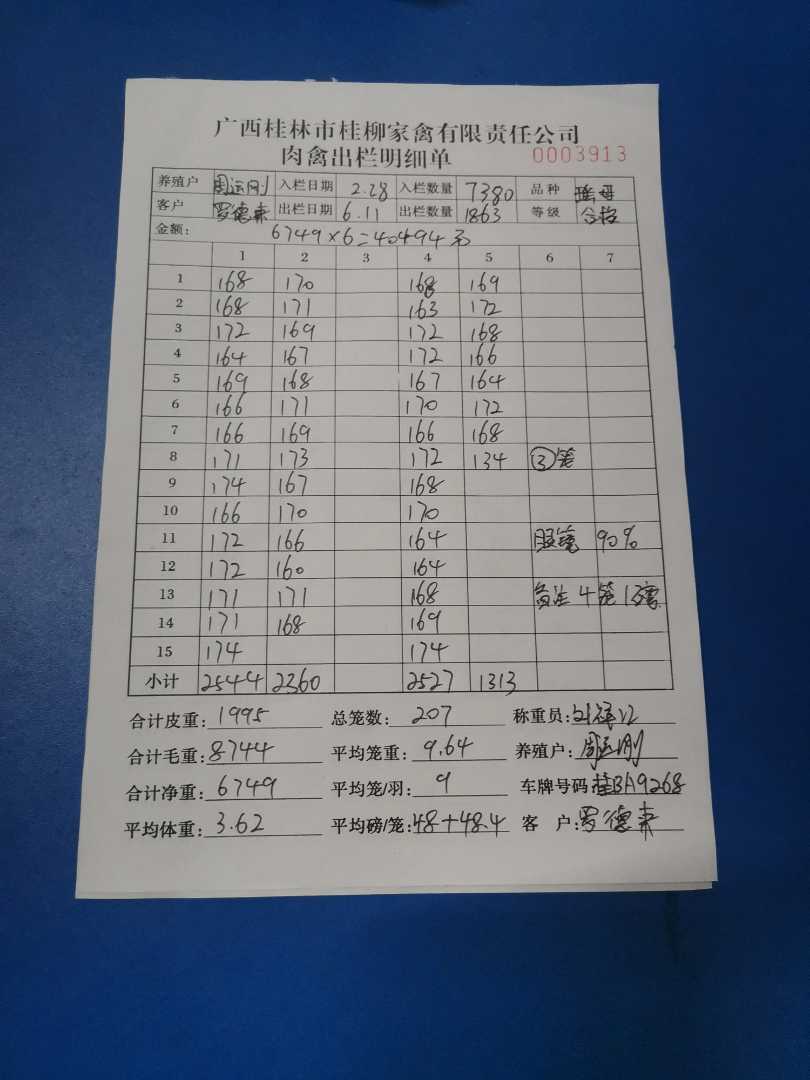 广西桂林市桂柳家禽有限责任公司
肉禽出栏明细单 0003913
养殖户 周运刚 入栏日期 2.28 入栏数量 7380 品种 瑶母
客户 罗德来 出栏日期 6.11 出栏数量 1863 等级 合格
金额: 6749×6=40494元
1 2 3 4 5 6 7
1 168 170 168 169
2 168 171 163 172
3 172 169 172 168
4 164 167 172 166
5 169 168 167 164
6 166 171 170 172
7 166 169 166 168
8 171 173 172 134 ③笼
9 174 167 168
10 166 170 170
11 172 166 164 90%
12 172 160 164
13 171 171 168 备注 4笼
14 171 168 169
15 174 174
小计 2544 2360 2527 1313
合计皮重: 1995 总笼数: 207 称重员:
合计毛重: 8744 平均笼重: 9.64 养殖户: 周运刚
合计净重: 6749 平均笼/羽: 9 车牌号码: 桂BA9268
平均体重: 3.62 平均磅/笼: 48+48.4 客 户: 罗德来